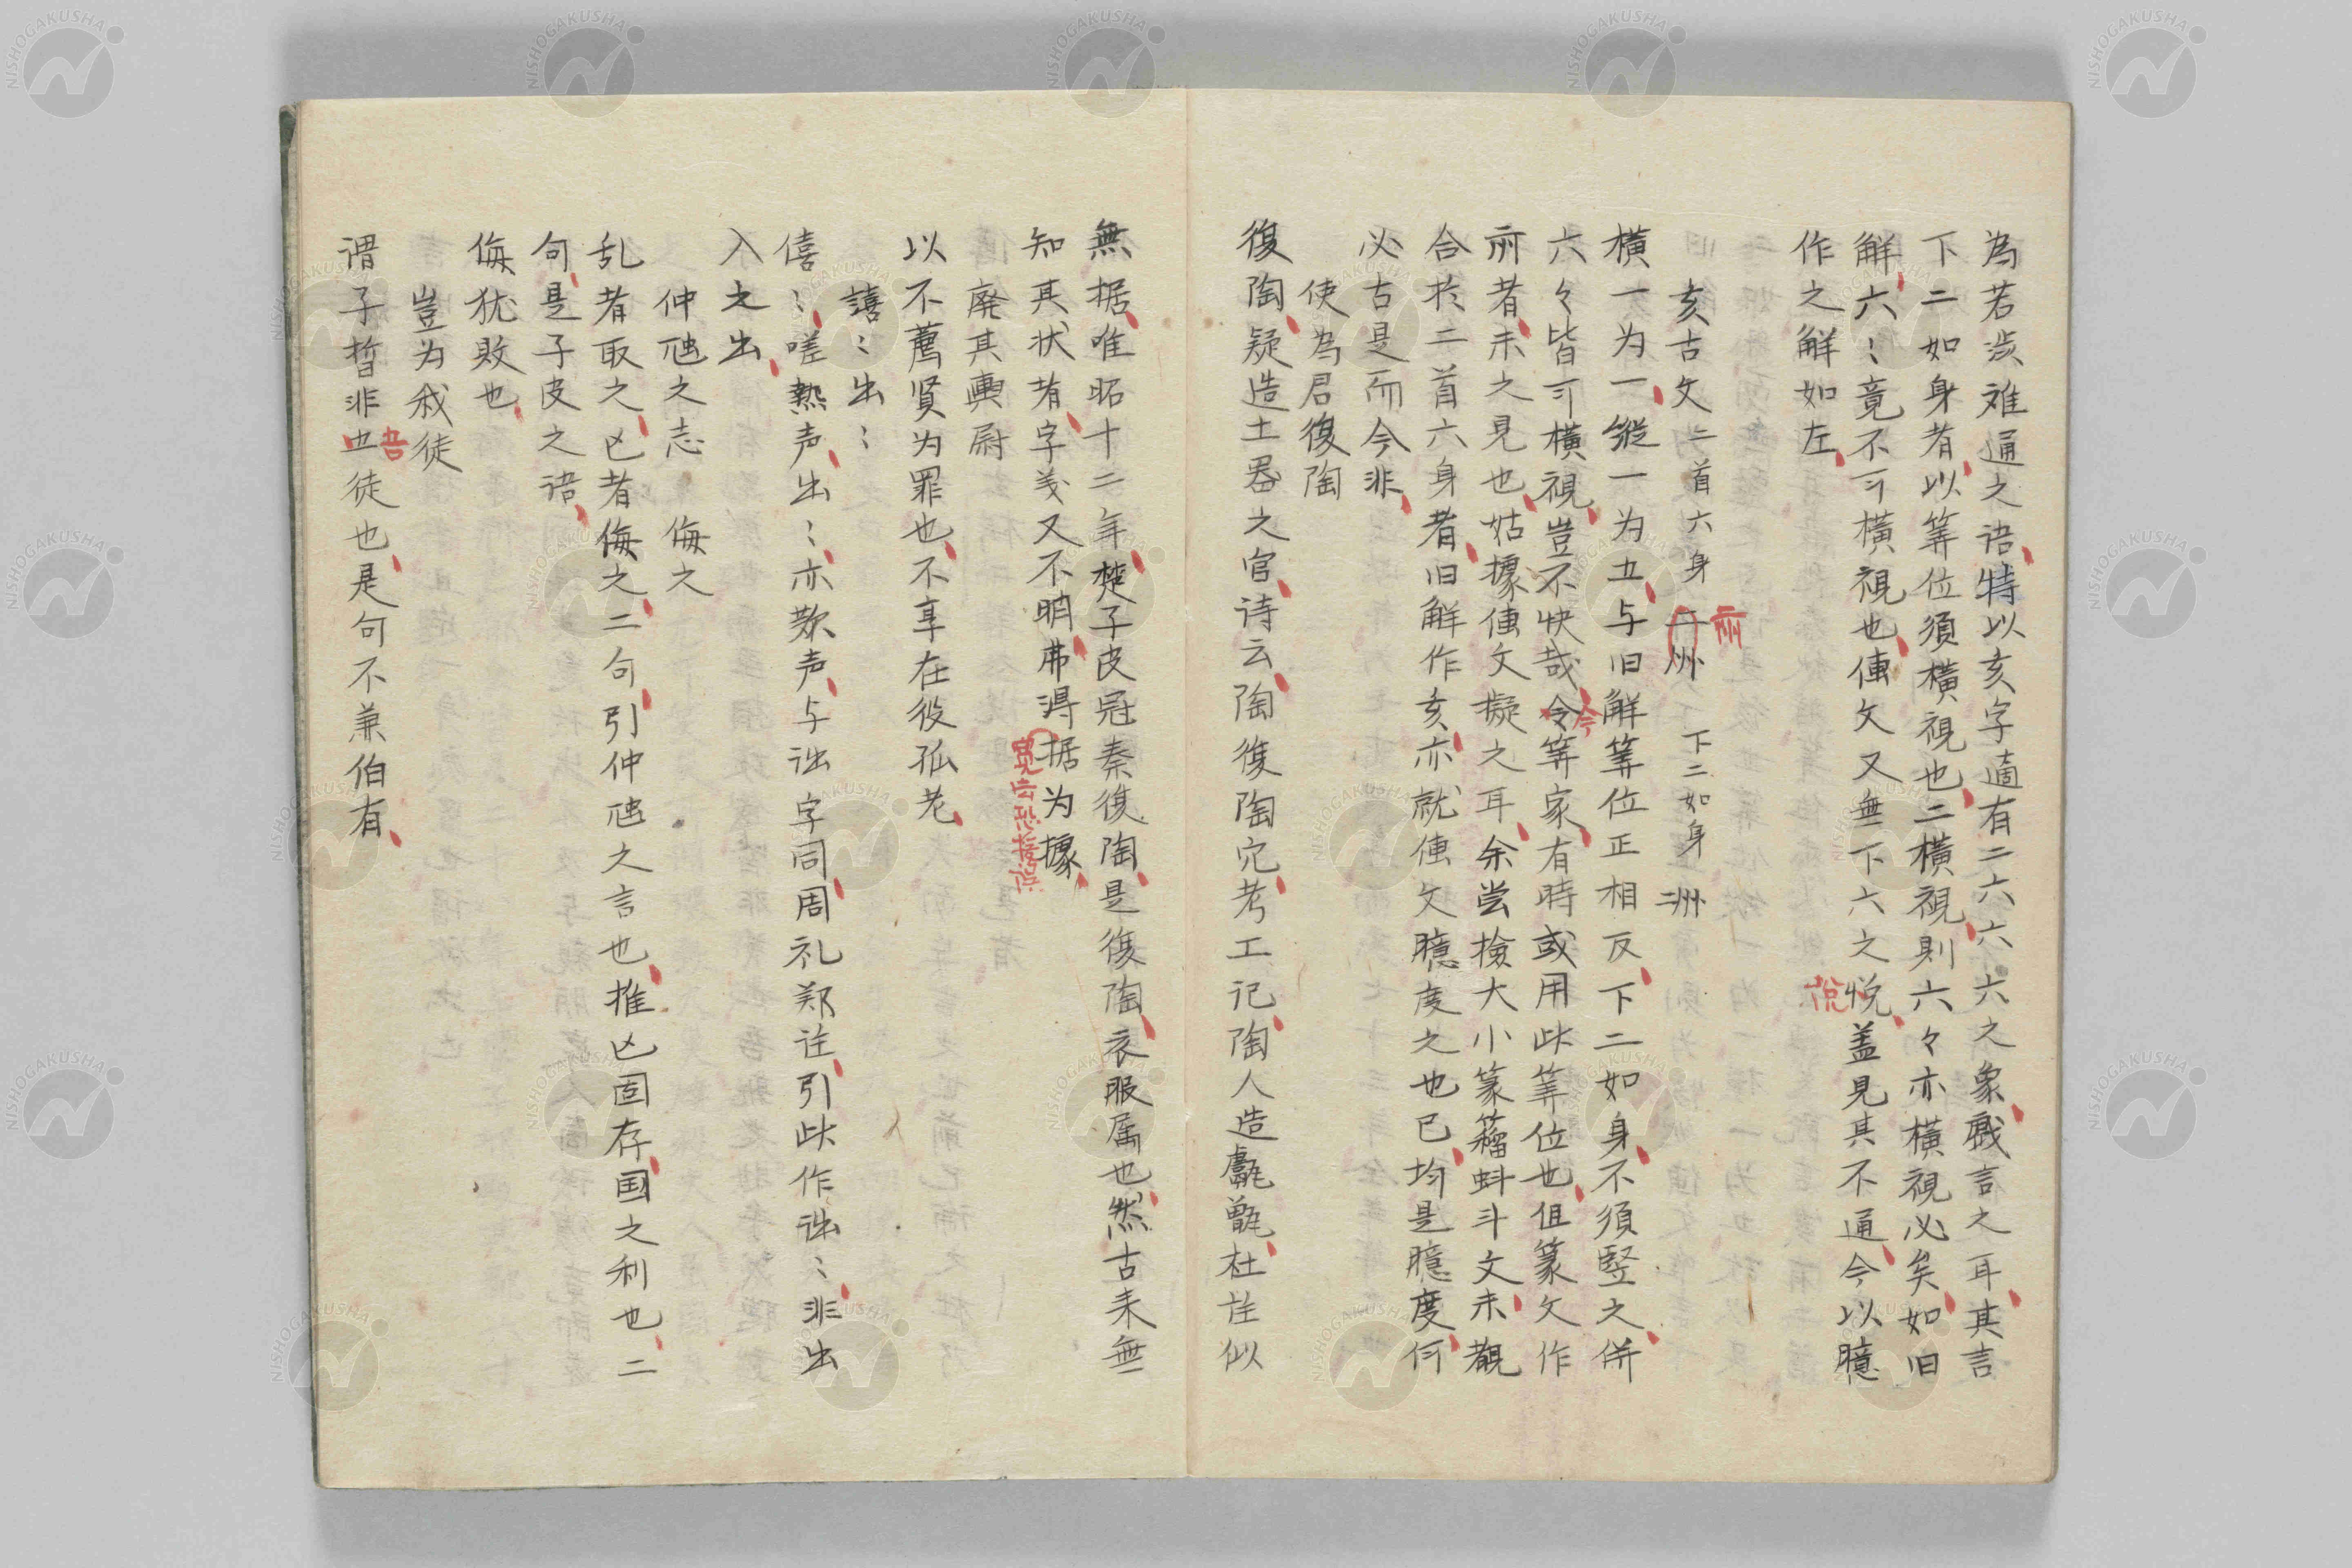 為若渋难通之语特以亥字適有二六六六之象戲言之耳其言
下二如身者以等位須橫視也二橫視則六々亦橫視必矣如旧
解六〻竟不可橫視也傳文又無下六之悦盖見其不通今以臆
説
作之解如左
亥古文二首六身二𠦌 下二如身
丽
橫一为一縱一为五与旧解等位正相反下二如身不須竪之併
六々皆可橫視豈不快哉令等家有時或用此等位也但篆文作
今
丽者未之見也姑據傳文擬之耳余尝撿大小篆籀蚪斗文未觀
合於二首六身者旧解作亥亦就傳文臆度之也已均是臆度何
必古是而今非
使為君復陶
復陶疑造土器之官诗云陶復陶穴考工记陶人造甗甑杜註似
無据唯昭十二年楚子皮冠秦復陶是復陶衣服属也然古来無
知其状者字义又不明弗得据为據
寛云恐接误
廃其輿尉
以不薦贤为罪也不享在役孤老
譆〻出〻
僖〻嗟熱声出〻亦歎声与诎字同周礼郑註引此作诎〻非出
入之出
仲虺之志 侮之
乱者取之亡者侮之二句引仲虺之言也推亡固存国之利也二
句是子皮之语
侮犹敗也
豈为我徒
谓子晳非五徒也是句不兼伯有
吾